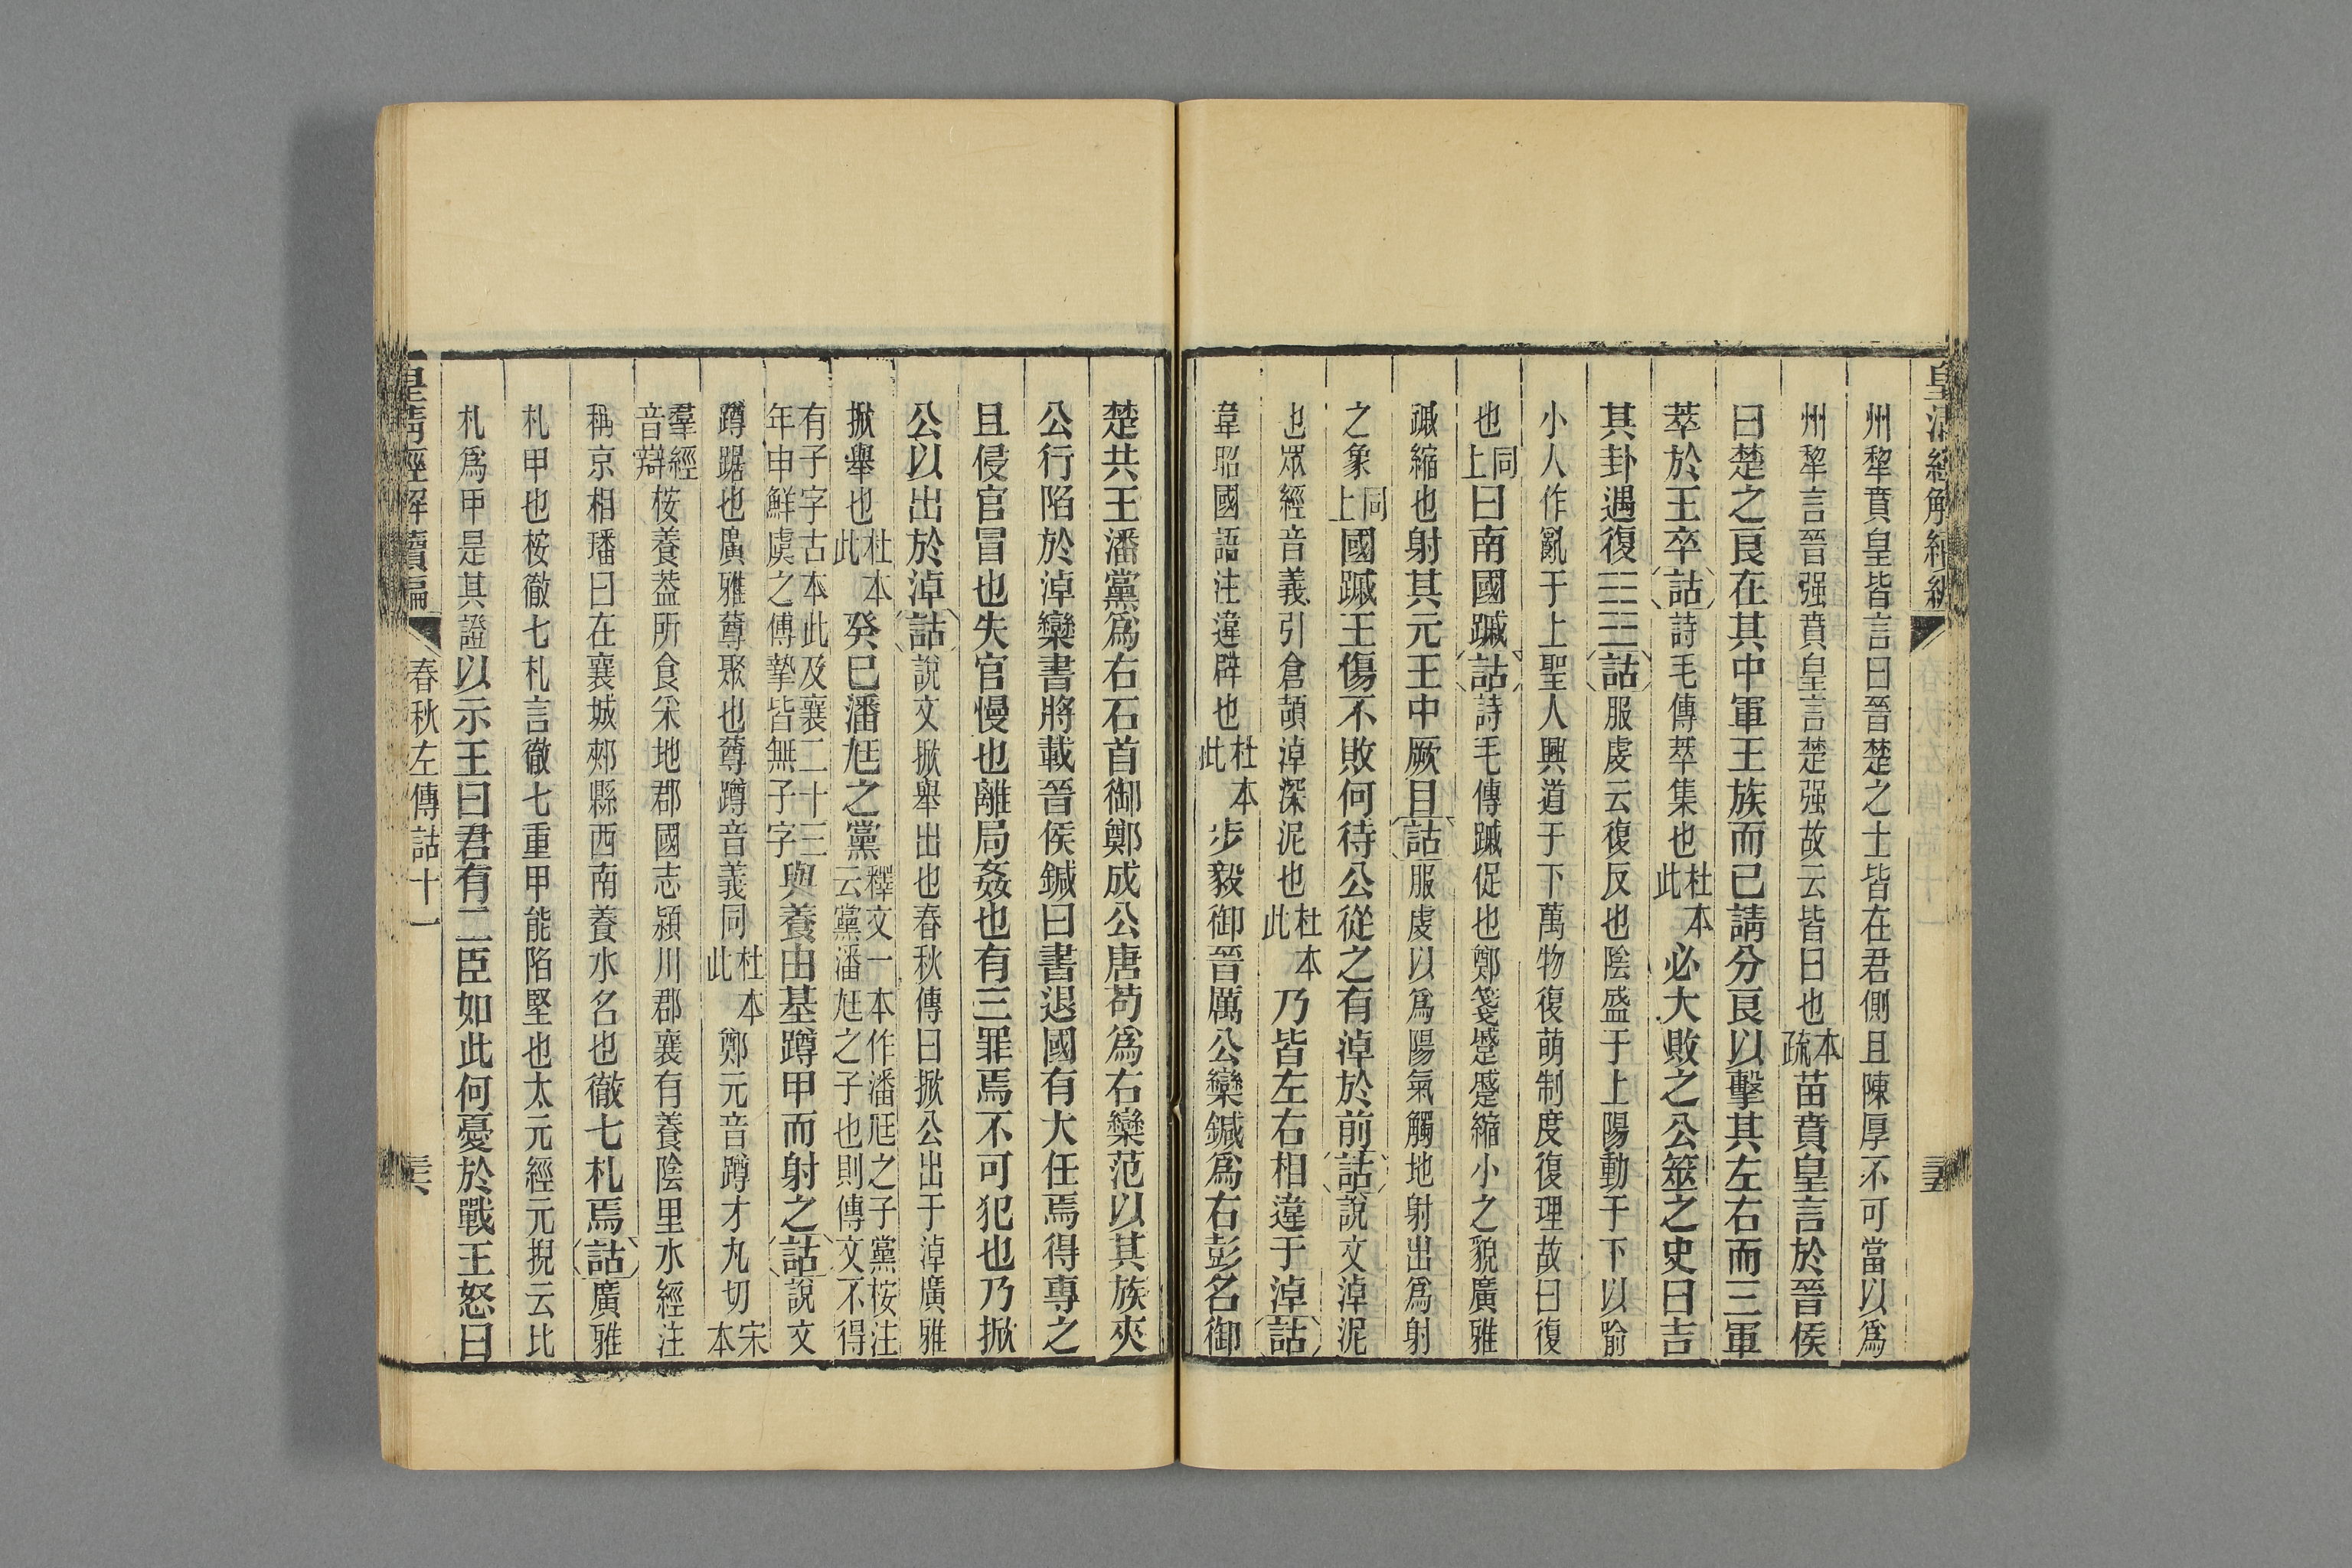 皇清經解續編
三五
州犂賁皇皆言曰晉楚之士皆在君側且陳厚不可當以爲
州犂言晉强賁皇言楚强故云皆曰也本疏苗賁皇言於晉侯
曰楚之良在其中軍王族而已請分良以擊其左右而三軍
萃於王卒詁詩毛傳萃集也杜本此必大敗之公筮之史曰吉
其卦遇復☷☳詁服虔云復反也陰盛于上陽動于下以喻
小人作亂于上聖人興道于下萬物復萌制度復理故曰復
也同上曰南國䠞詁詩毛傳䠞促也鄭箋蹙蹙縮小之貌廣雅
䠞縮也射其元王中厥目詁服虔以爲陽氣觸地射出爲射
之象同上國䠞王傷不敗何待公從之有淖於前詁說文淖泥
也眾經音義引倉頡淖深泥也杜本此乃皆左右相違于淖詁
韋昭國語注違辟也杜本此步毅御晉厲公欒鍼爲右彭名御
楚共王潘黨爲右石首御鄭成公唐苟爲右欒范以其族夾
公行陷於淖欒書將載晉侯鍼曰書退國有大任焉得專之
且侵官冒也失官慢也離局姦也有三罪焉不可犯也乃掀
公以出於淖詁說文掀舉出也春秋傳曰掀公出于淖廣雅
掀舉也杜本此癸巳潘尫之黨釋文一本作潘尫之子黨桉注云黨潘尫之子也則傳文不得
有子字古本此及襄二十三年申鮮虞之傅摯皆無子字與養由基蹲甲而射之詁說文
蹲踞也廣雅蓴聚也蓴蹲音義同杜本此鄭元音蹲才丸切宋本
羣經音辯桉養葢所食采地郡國志潁川郡襄有養陰里水經注
稱京相璠曰在襄城郟縣西南養水名也徹七札焉詁廣雅
札甲也桉徹七札言徹七重甲能陷堅也太元經元掜云比
札爲甲是其證以示王曰君有二臣如此何憂於戰王怒曰
皇清經解續編
春秋左傳詁十一
三六